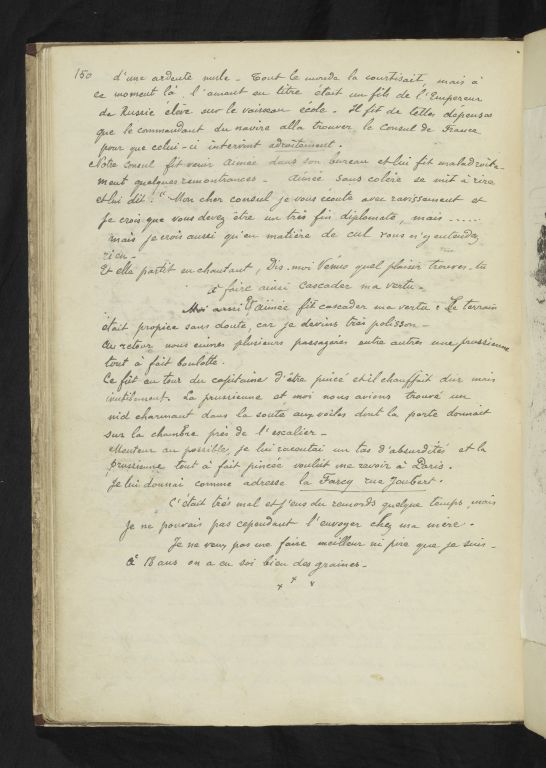 150
d'une ardente nuble - Tout le monde la courtisait, mais à
ce moment là l'amant en titre était un fils de l'Empereur
de Russie élève sur le vaisseau école. Il fit de telles dépenses
que le commandant du navire alla trouver le consul de France
pour que celui-ci intervint adroitement.
Notre consul fit venir Aimée dans son bureau et lui fit maladroite
ment quelques remontrances - Aimée sans colère se mit à rire
et lui dit : " Mon cher consul je vous écoute avec ravissement et
je crois que vous devez être un très fin diplomate, mais .....
mais je crois aussi qu'en matière de cul vous n'y entendez
rien -
Et elle partit en chantant, Dis-moi Vénus quel plaisir trouves-tu
à faire ainsi cascader ma vertu -
Moi aussi Aimée fit cascader ma vertu. Le terrain
était propice sans doute, car je devins très polisson -
Au retour nous eûmes plusieurs passagères entre autres une prussienne
tout à fait boulotte.
Ce fût au tour du capitaine d'être pincé et il chauffait dur mais
inutilement. La prussienne et moi nous avions trouvé un
nid charmant dans la soute aux voiles dont la porte donnait
sur la chambre près de l'escalier -
Menteur au possible, je lui racontai un tas d'absurdités et la
prussienne tout à fait pincée voulût me revoir à Paris.
Je lui donnai comme adresse la Farcy rue Joubert.
C'était très mal et j'eus du remords quelque temps mais
je ne pouvais pas cependant l'envoyer chez ma mère.
Je ne veux pas me faire meilleur ni pire que je suis -
À 18 ans on a en soi bien des graines -
x x x